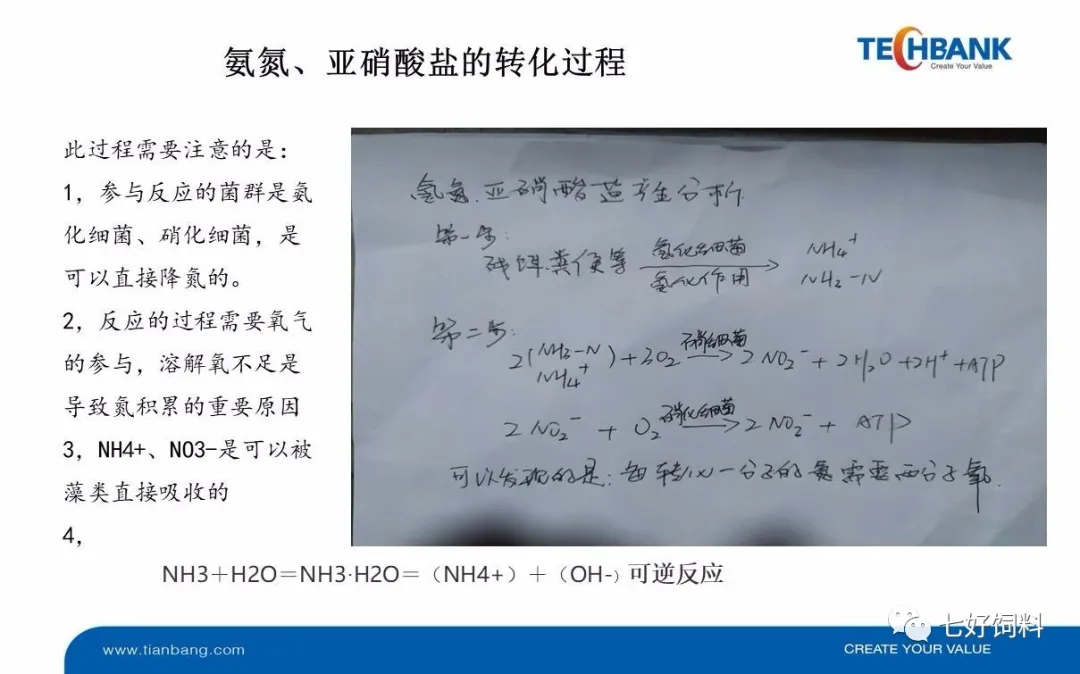 氨氮、亚硝酸盐的转化过程
TECHBANK
Create Your Value
此过程需要注意的是：
1，参与反应的菌群是氨
化细菌、硝化细菌，是
可以直接降氮的。
2，反应的过程需要氧气
的参与，溶解氧不足是
导致氮积累的重要原因
3，NH4+、NO3-是可以被
藻类直接吸收的
4，
氨氮.亚硝酸盐产生分析
第一步:
残饵.粪便等 氨化细菌 NH4+
氨化作用 NH3-N
第二步:
2(NH3-N NH4+)+3O2 硝化细菌 2NO2-+2H2O+2H++ATP
2NO2- + O2 硝化细菌 2NO2- + ATP
可以发现的是:每转化一分子的氨需要两分子氧.
NH3＋H2O＝NH3·H2O＝（NH4+）＋（OH-）可逆反应
七好饲料
www.tianbang.com
CREATE YOUR VALUE